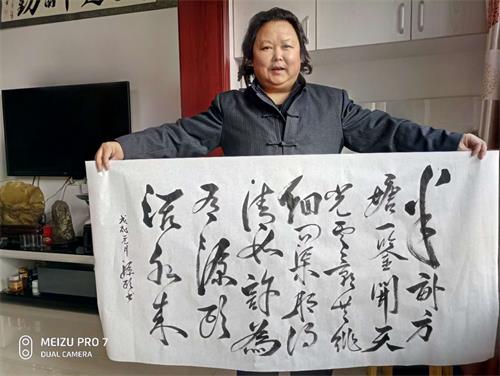 半畝方
塘一鑒開天
光雲影共徘
徊問渠那得
清如許為
有源頭
活水来
戊戌元月
MEIZU PRO 7
DUAL CAMERA